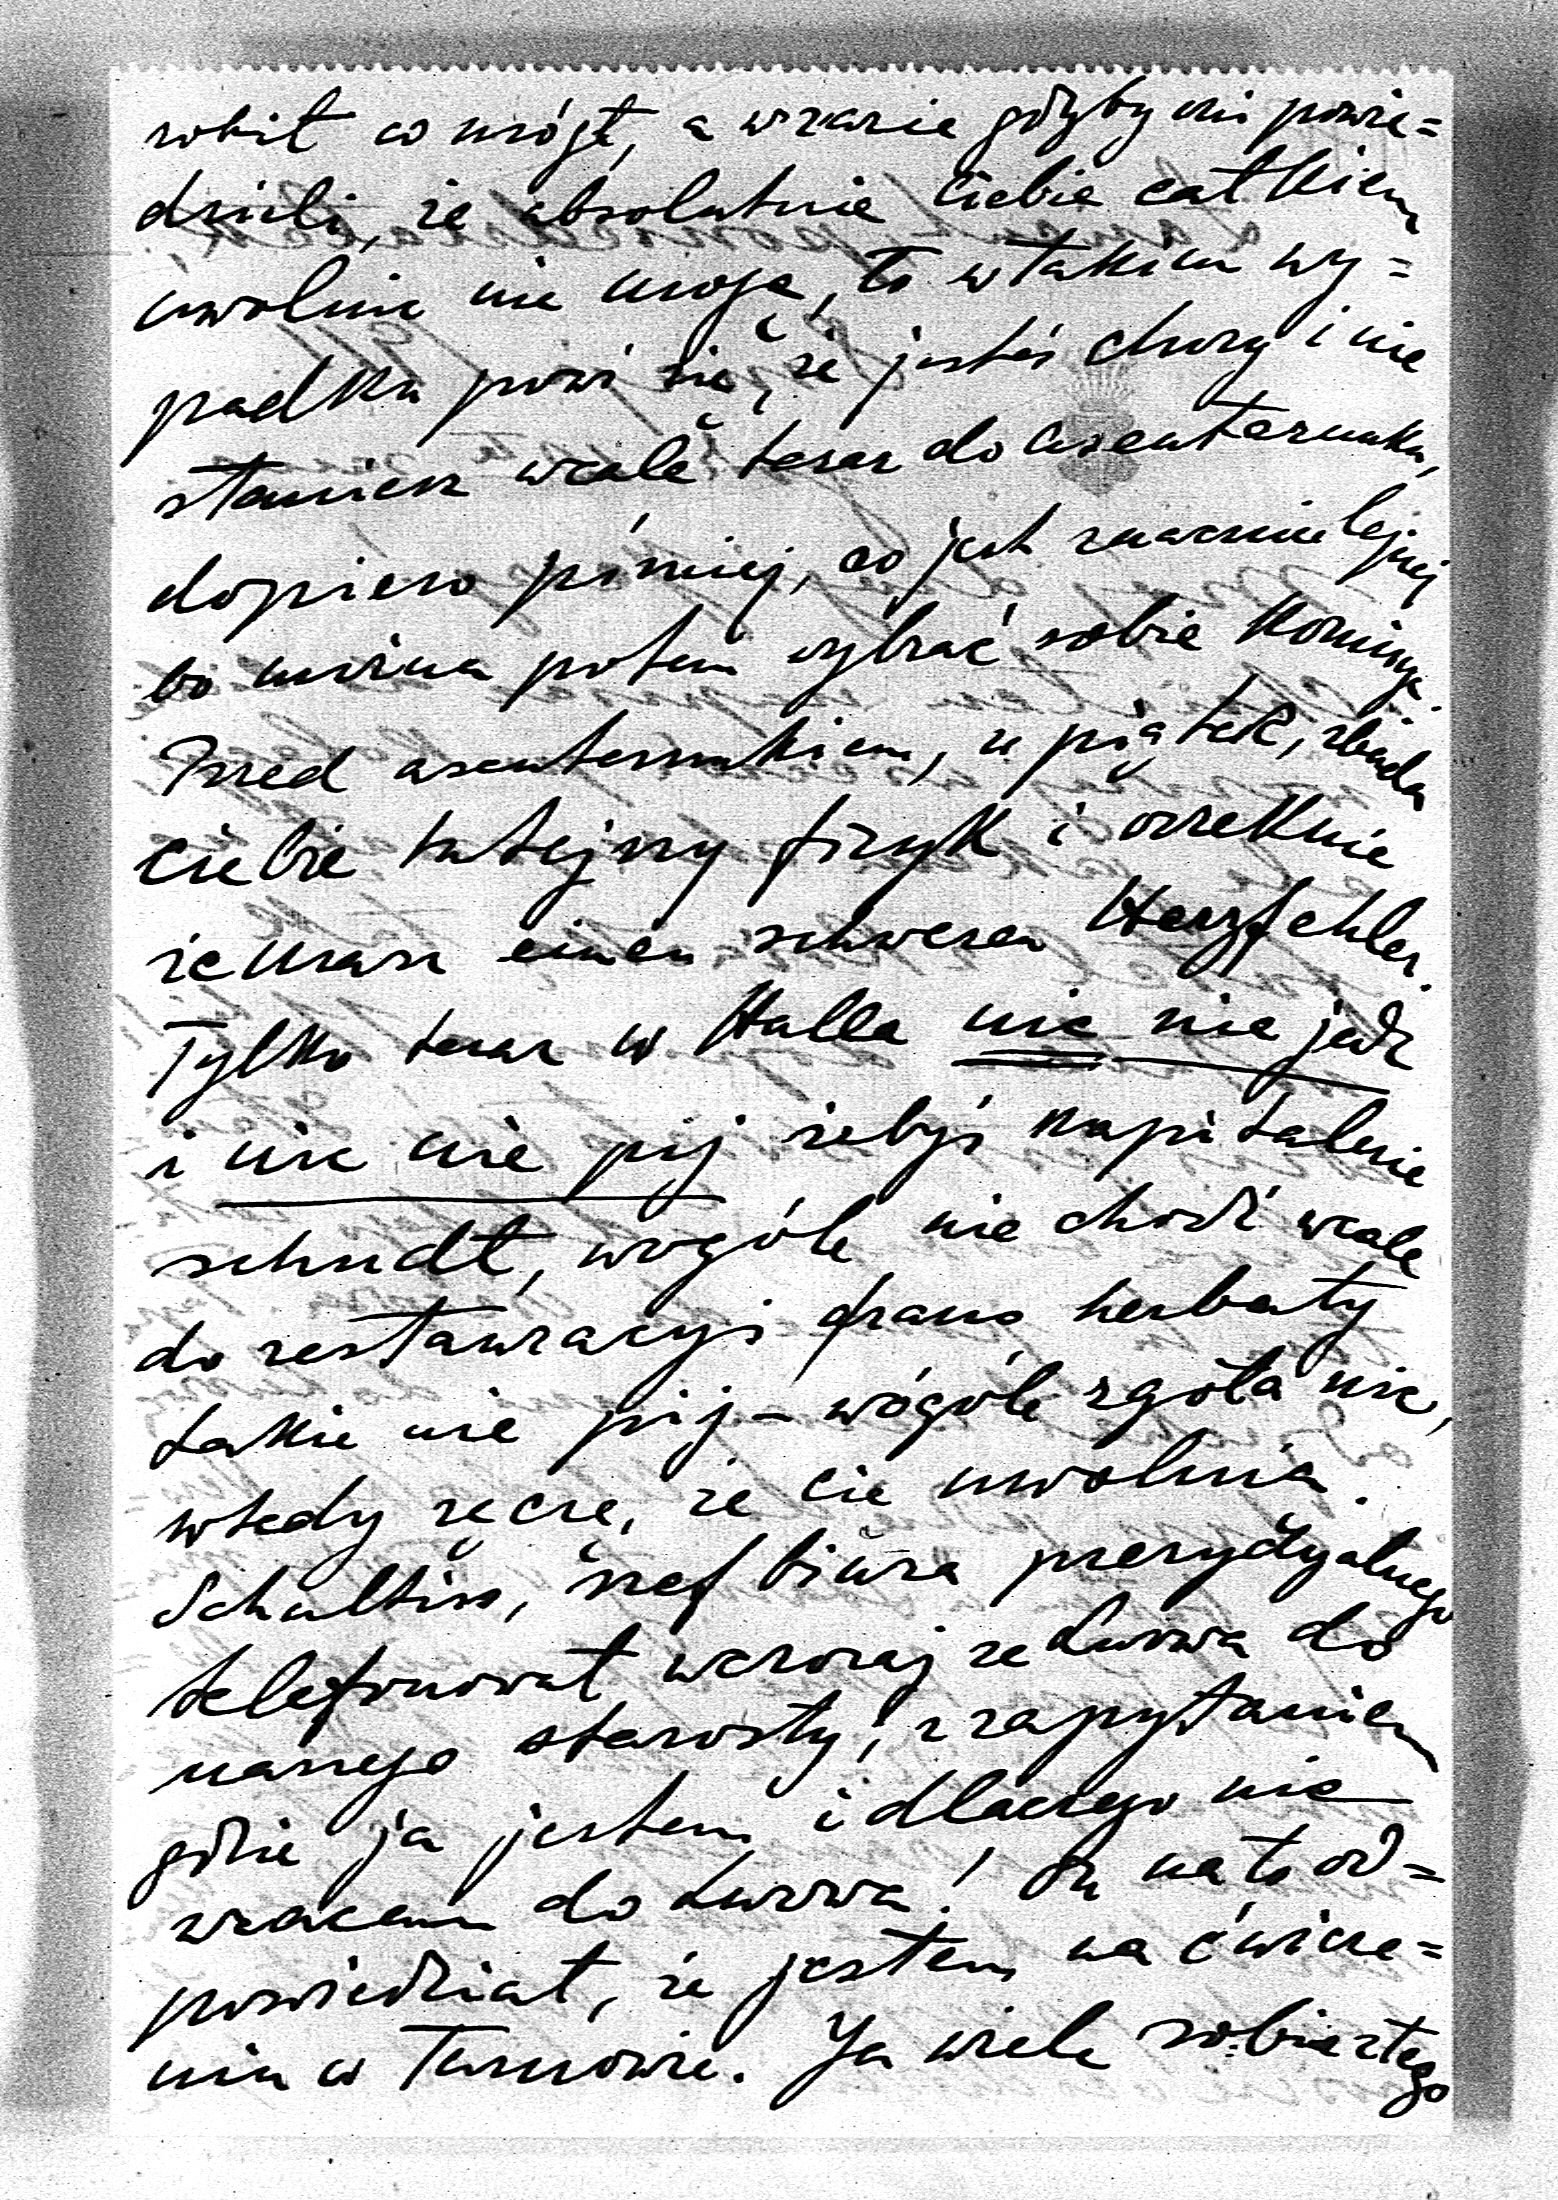 robił co mógł, a wrazie gdyby oni powie=
dzieli, że absolutnie Ciebie całkiem
uwolnić nie mogą, to w takim wy=
padku powi się, że jesteś chory i nie
staniesz wcale teraz do asenterunku,
dopiero później, co jest znacznie lepiej
bo można potem wybrać sobie Komisyę.
Przed asenterunkiem, w piątek, zbada
Ciebie tutejszy fizyk i orzeknie
że masz einen schweren Herzfehler.
Tylko teraz w Halle nic nie jedz
i nic nie pij żebyś kapitalnie
schudł, wogóle nie chodź wcale
do restauracyi, prano herbaty
także nie pij – wogóle zgoła nic,
wtedy ręczę, że Cię uwolnią.
Schultis, szef biura prezydyalnego
telefonował wczoraj ze Lwowa do
naszego starosty, z zapytaniem
gdzie ja jestem i dlaczego nie
wracam do Lwowa! On na to od=
powiedział, że jestem na ćwicze=
niu w Tarnowie. Ja wiele sobie z tego